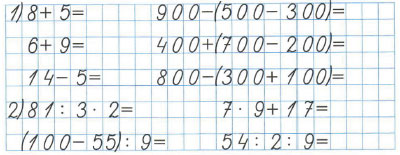 1) 8+5= 900-(500-300)=
6+9= 400+(700-200)=
14-5= 800-(300+100)=
2) 81:3·2= 7·9+17=
(100-55):9= 54:2:9=